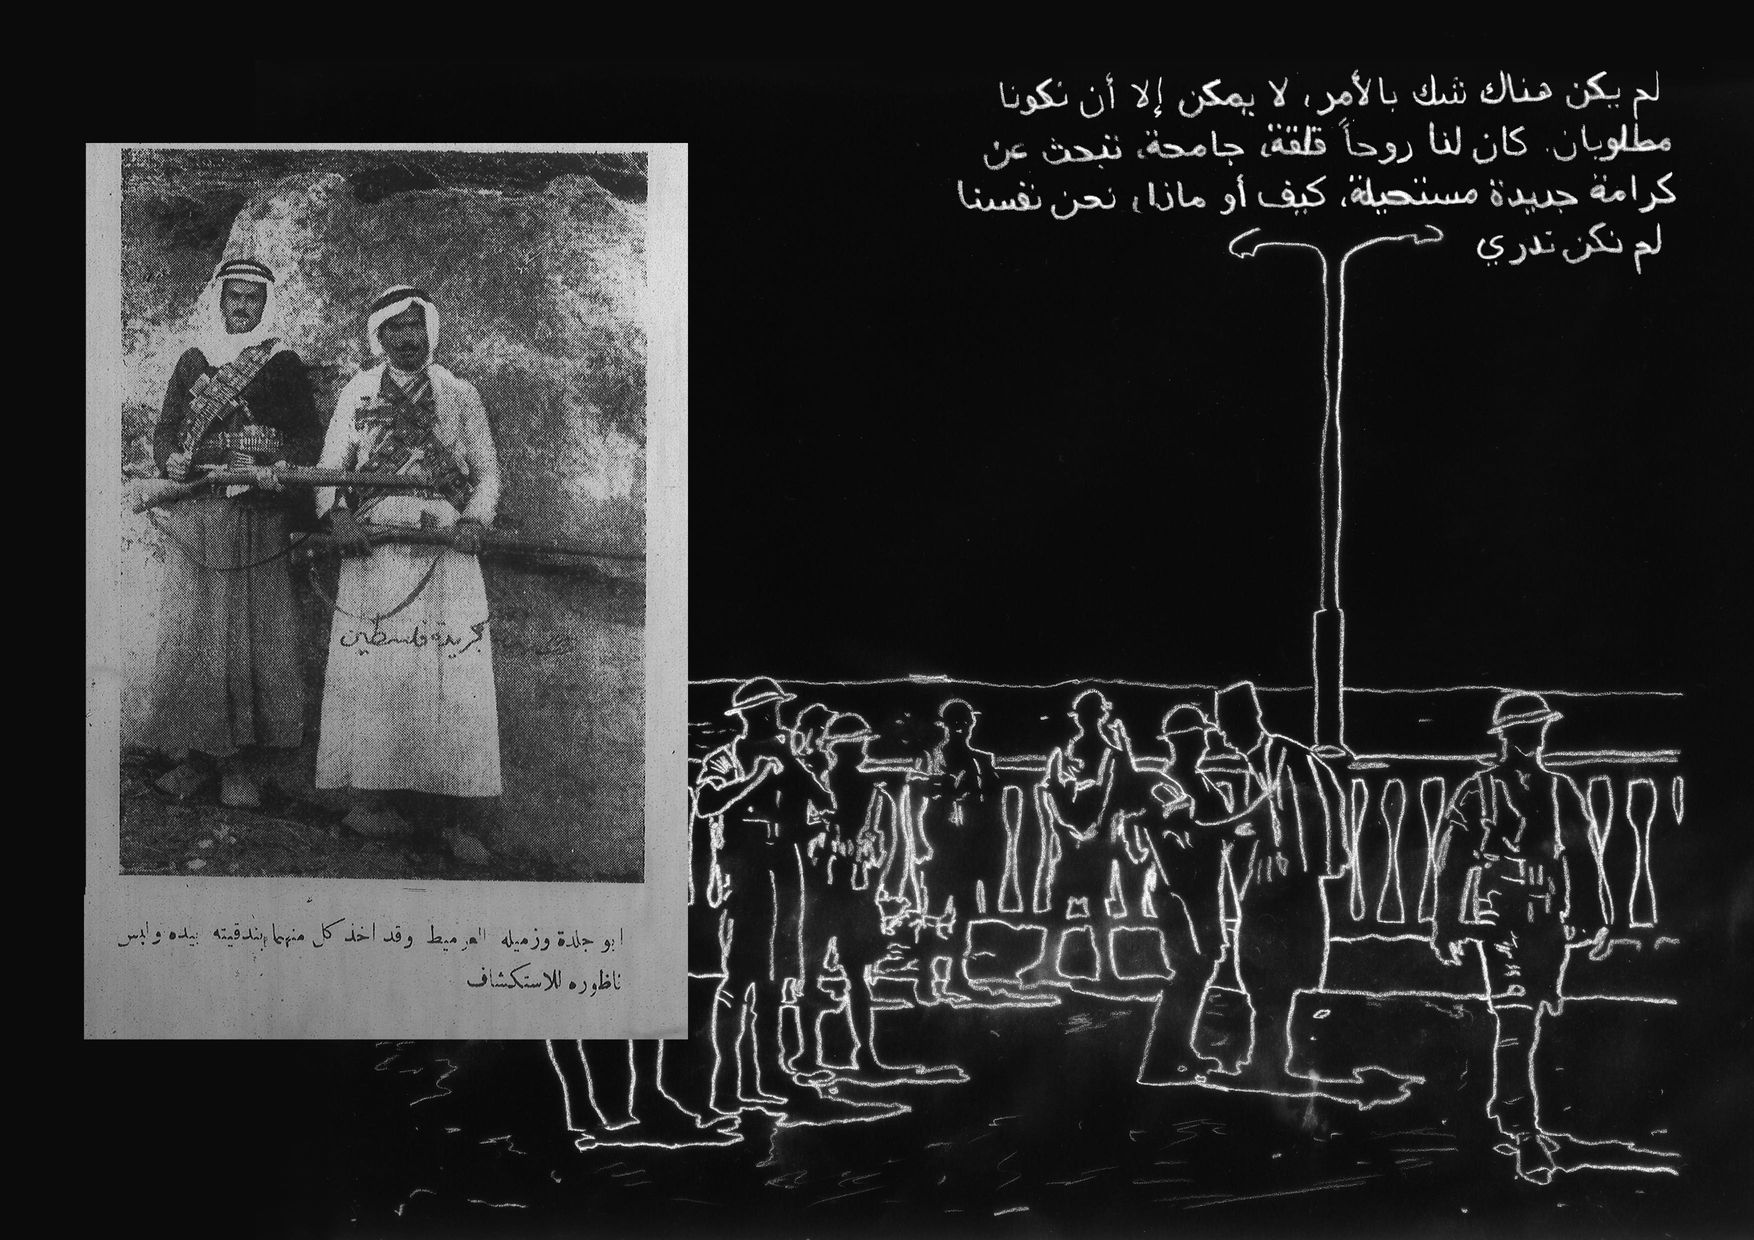 لم يكن هناك شك بالأمر، لا يمكن إلا أن نكونا
مطلوبان. كان لنا روحاً قلقة، جامحة، تبحث عن
كرامة جديدة مستحيلة، كيف أو ماذا، نحن نفسنا
لم نكن ندري
جريدة فلسطين
ابو جلدة وزميله العرميط وقد اخذ كل منهما بندقيته بيده ولبس
ناظوره للاستكشاف